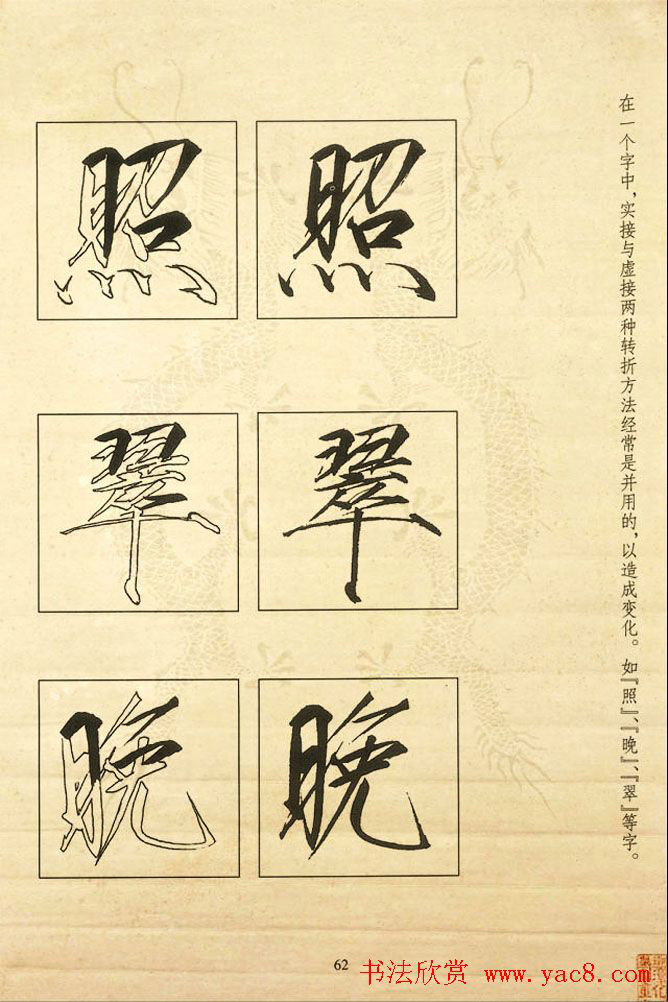 在一个字中，实接与虚接两种转折方法经常是并用的，以造成变化。如『照』、『晚』、『翠』等字。
照 照
翠 翠
晚 晚
62
书法欣赏 www.yac8.com